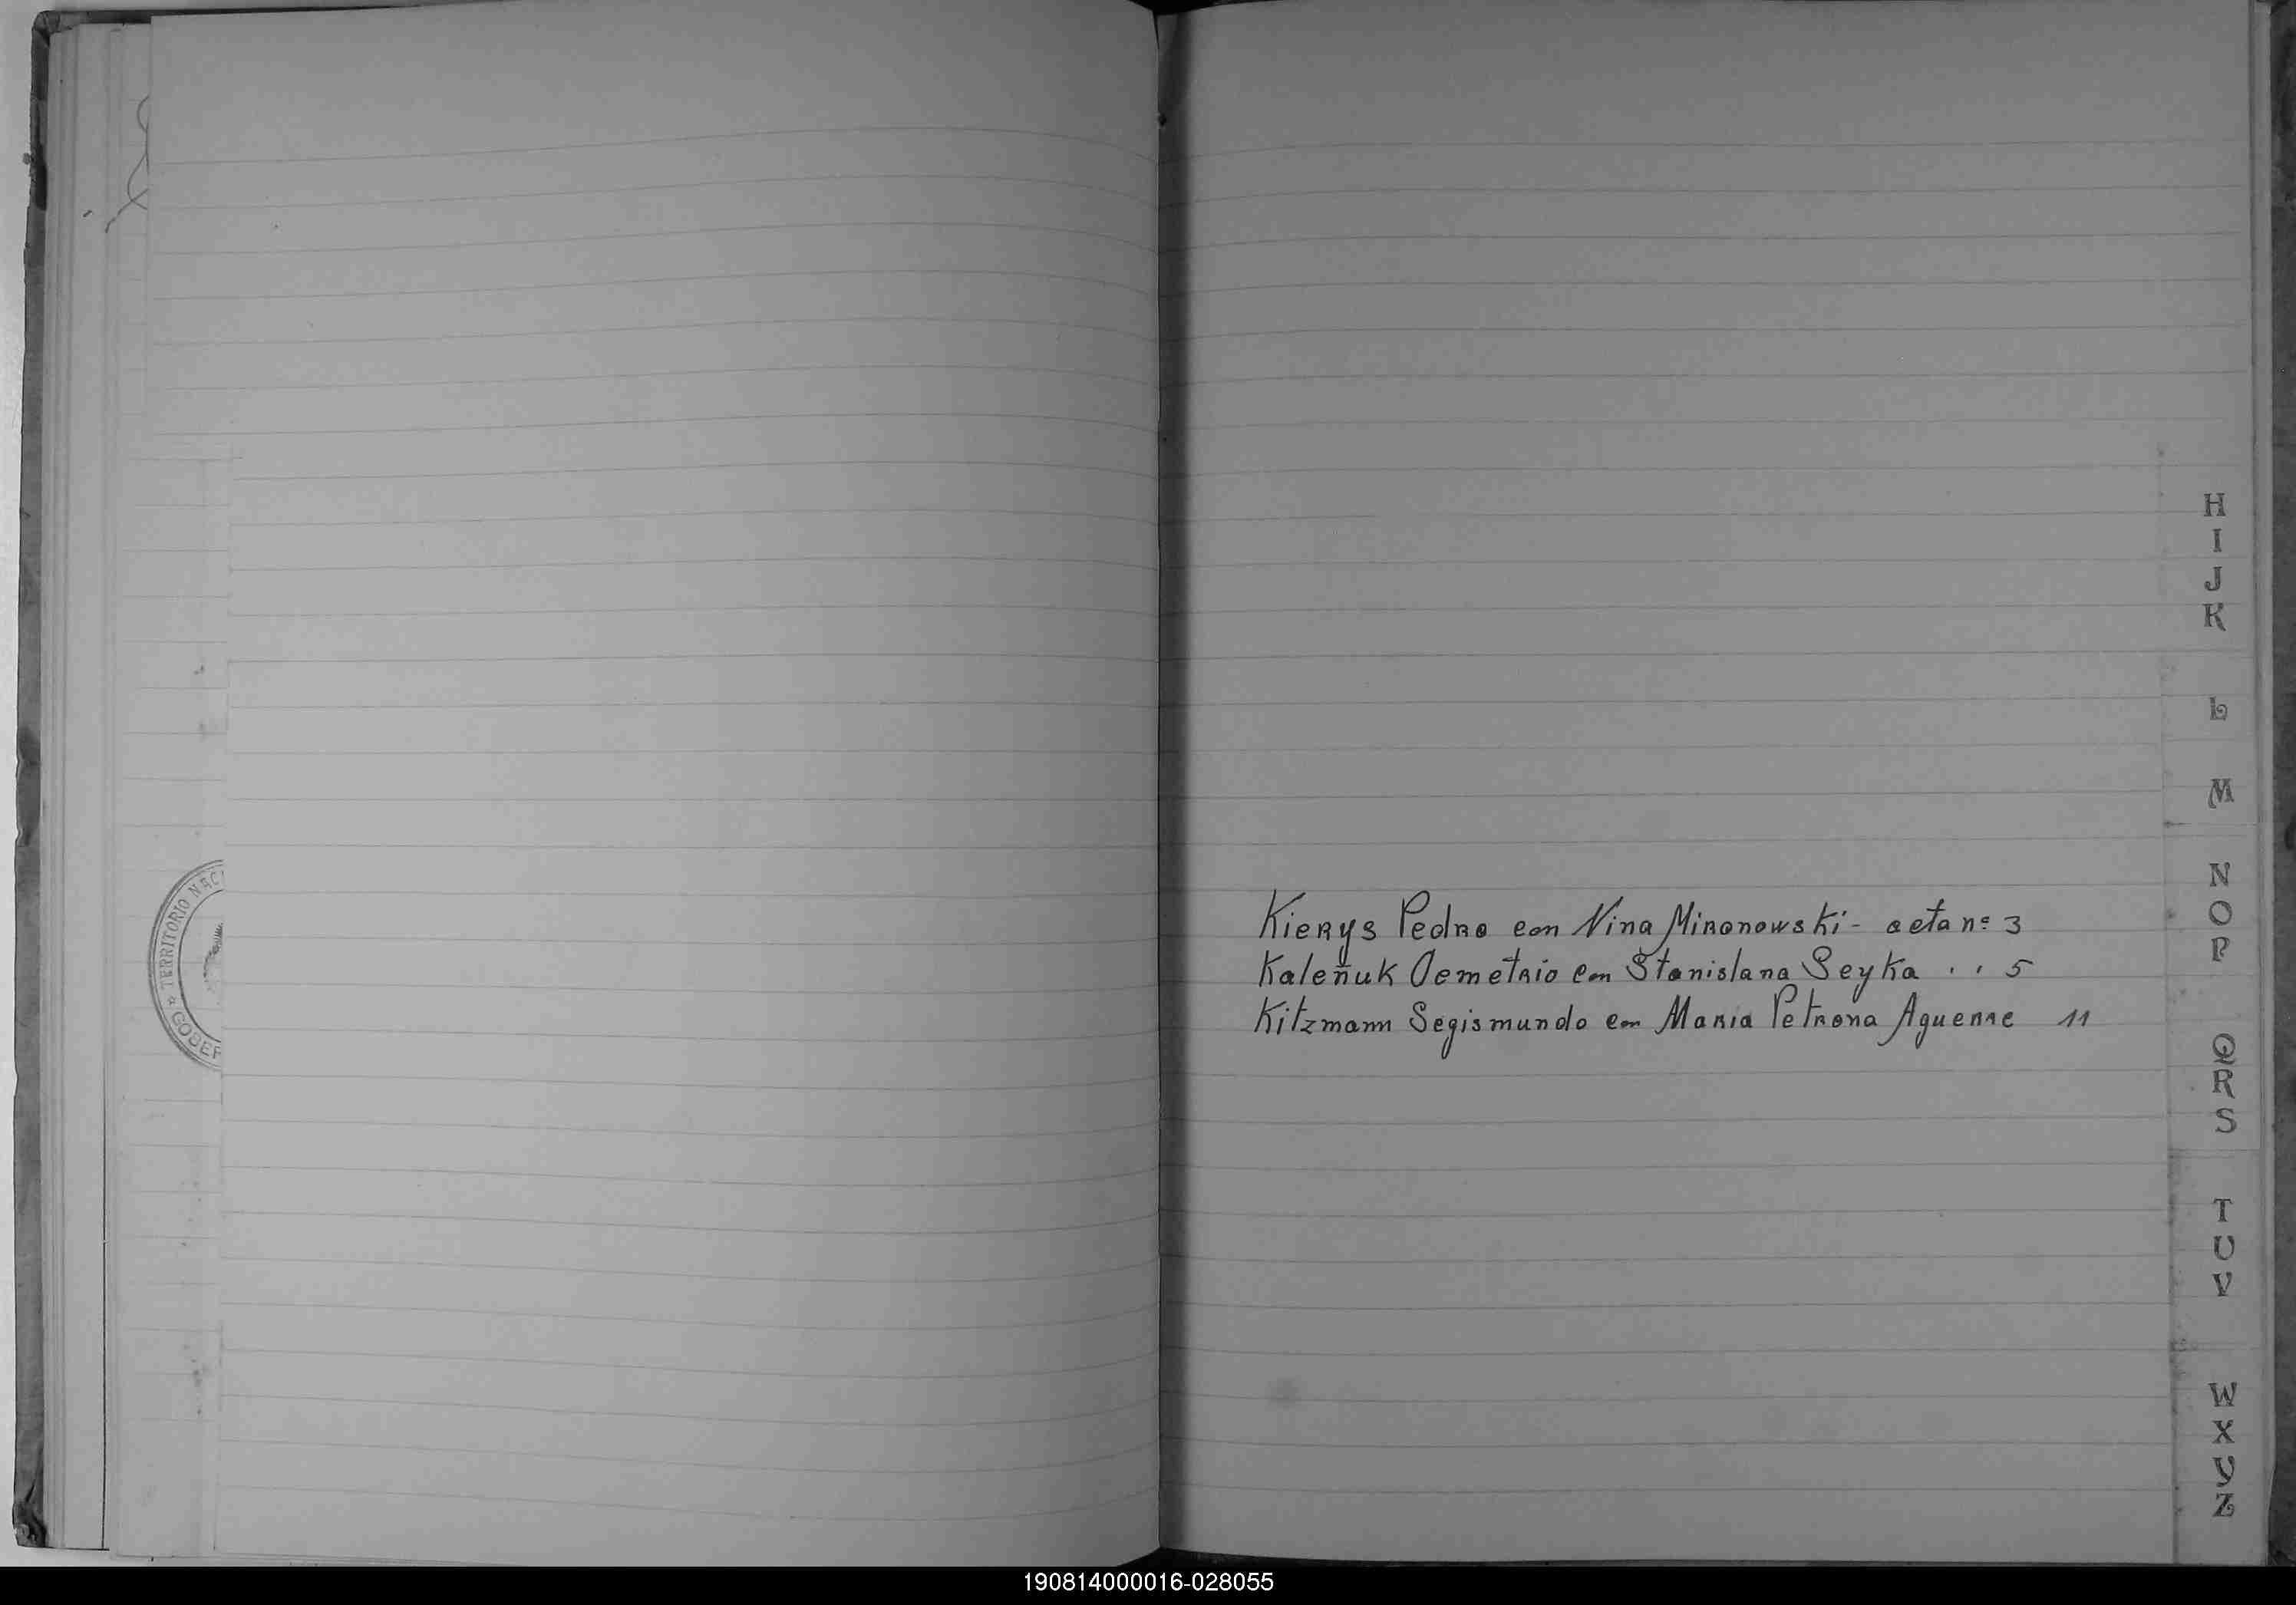 TERRITORIO NAC
GOBER
H
I
J
K
L
M
N
O
P
Kierys Pedro con Nina Mironowski - acta nº 3
Kaleñuk Demetrio con Stanislana Seyka . . 5
Kitzmann Segismundo con Maria Petrona Aguerre 11
Q
R
S
T
U
V
W
X
Y
Z
190814000016-028055